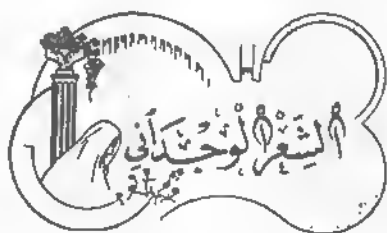 الشِّعْرُ الوُجْدَانِي